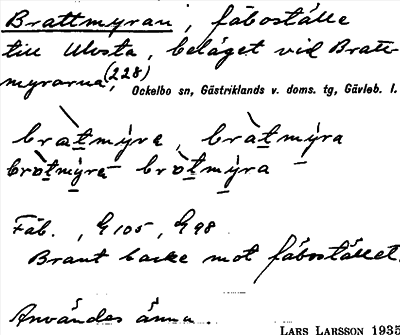 Brattmyran, fäboställe
till Ulvsta, beläget vid Bratt-
myrarna, (228)
Ockelbo sn, Gästriklands v. doms. tg, Gävleb. l.
bràtmyra, bràtmyra
bròtmyra bròtmyra
Fäb., G 105, G 98
Brant backe mot fäbostället.
Användes ännu.
LARS LARSSON 1935